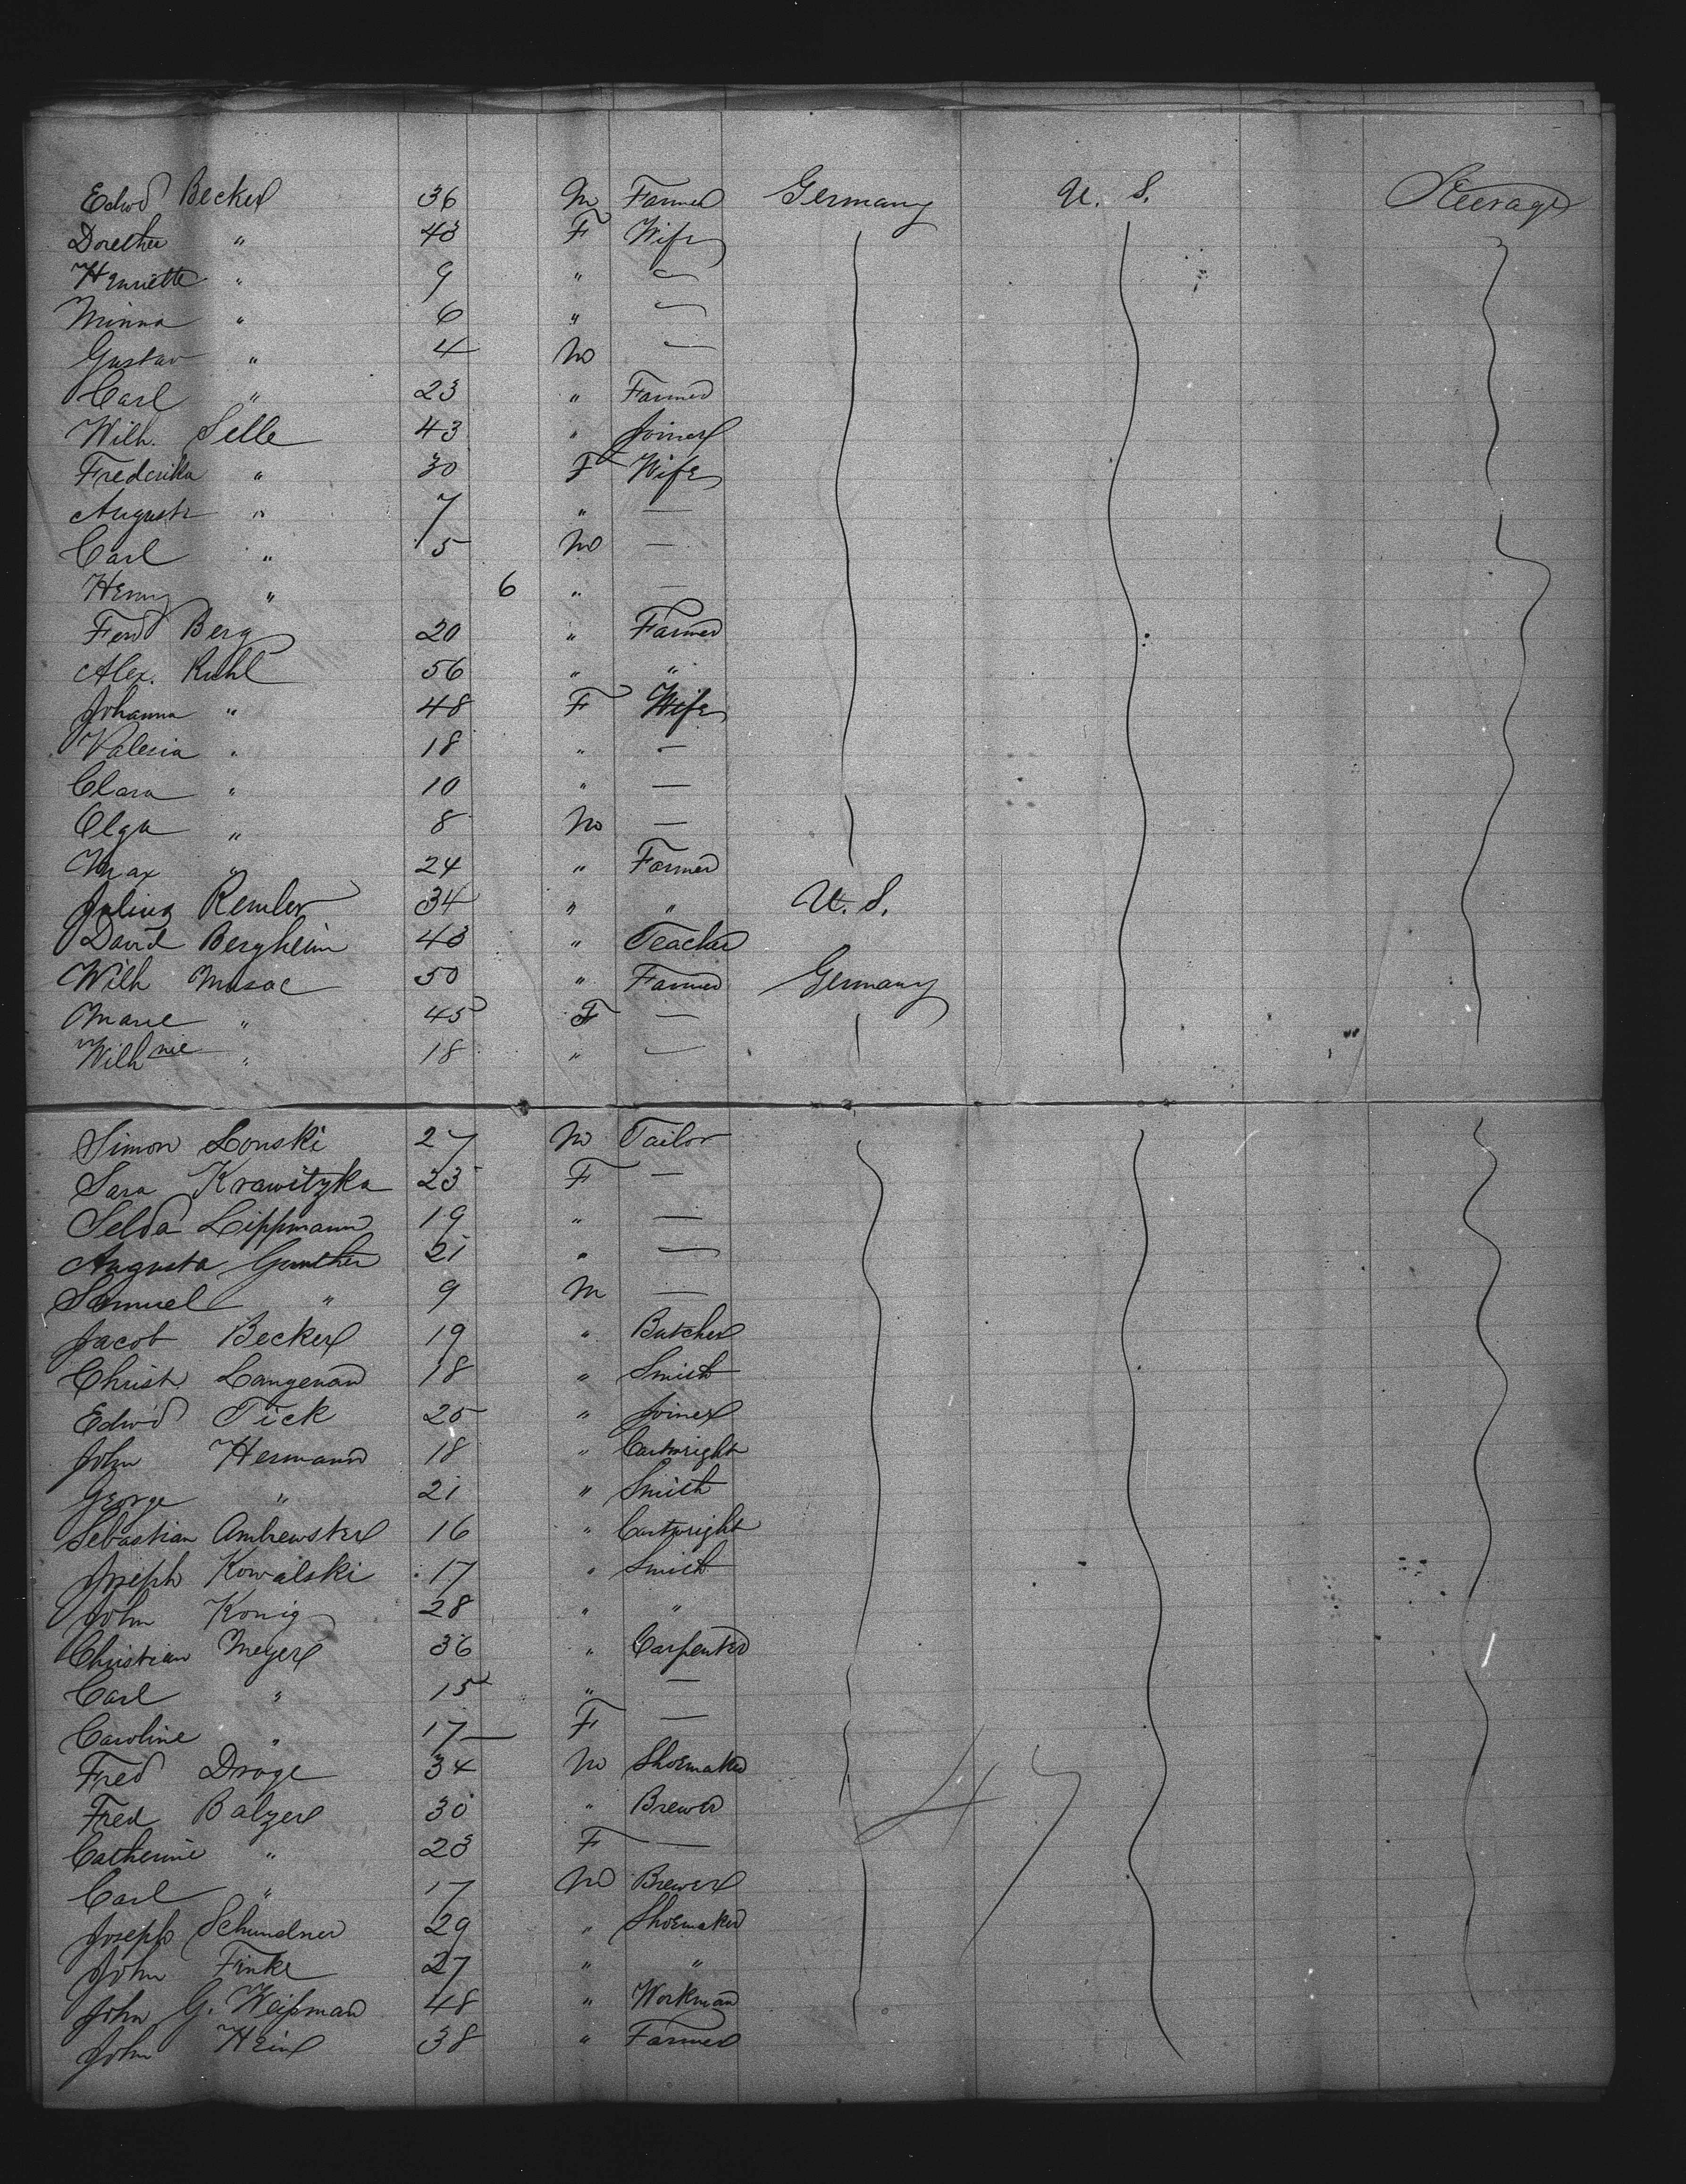 Edwd Becker 36 M Farmer Germany U. S. Steerage
Dorethea " 43 F Wife
Henriette " 9 " —
Minna " 6 " —
Gustav " 4 M —
Carl " 23 " Farmer
Wilh. Selle 43 " Joiner
Frederika " 30 F Wife
Auguste " 7 " —
Carl " 5 M —
Henry " 6 " —
Ferd Berg 20 " Farmer
Alex. Kuhl 56 " "
Johanna " 48 F Wife
Valesia " 18 " —
Clara " 10 " —
Olga " 8 M —
Max " 24 " Farmer
Julius Remler 34 " " U. S.
David Bergheim 43 " Teacher
Wilh Musac 50 " Farmer Germany
Marie " 45 F —
Wilhme " 18 " —
Simon Lonski 27 M Tailor
Sara Krawitzka 23 F —
Selda Lippmann 19 " —
Augusta Gunther 21 " —
Samuel " 9 M —
Jacob Becker 19 " Butcher
Christ. Langenau 18 " Smith
Edwd Tick 25 " Joiner
John Hermann 18 " Cartwright
George " 21 " Smith
Sebastian Ambrewster 16 " Cartwright
Joseph Kowalski 17 " Smith
John Konig 28 " "
Christian Meyer 36 " Carpenter
Carl " 15 " —
Caroline " 17 F —
Fred Droge 34 M Shoemaker
Fred Balzer 30 " Brewer
Catherine " 23 F — 47
Carl " 17 M Brewer
Joseph Schundner 29 " Shoemaker
John Finke 27 " "
John G. Weißman 48 " Workman
John Hein 38 " Farmer